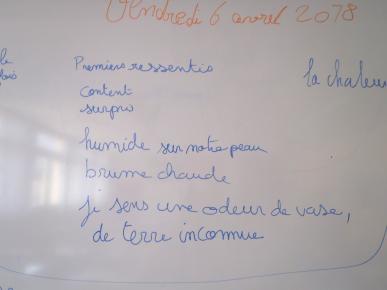 Vendredi 6 avril 2018
Premiers ressentis
la chaleur
Content
surpris
humide sur notre peau
brume chaude
je sens une odeur de vase,
de terre inconnue